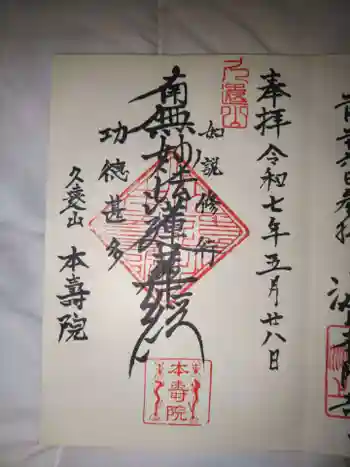 奉拝 令和七年五月廿八日
久遠山
如説修行
南無妙法蓮華経
功徳甚多
久遠山 本壽院
本壽院